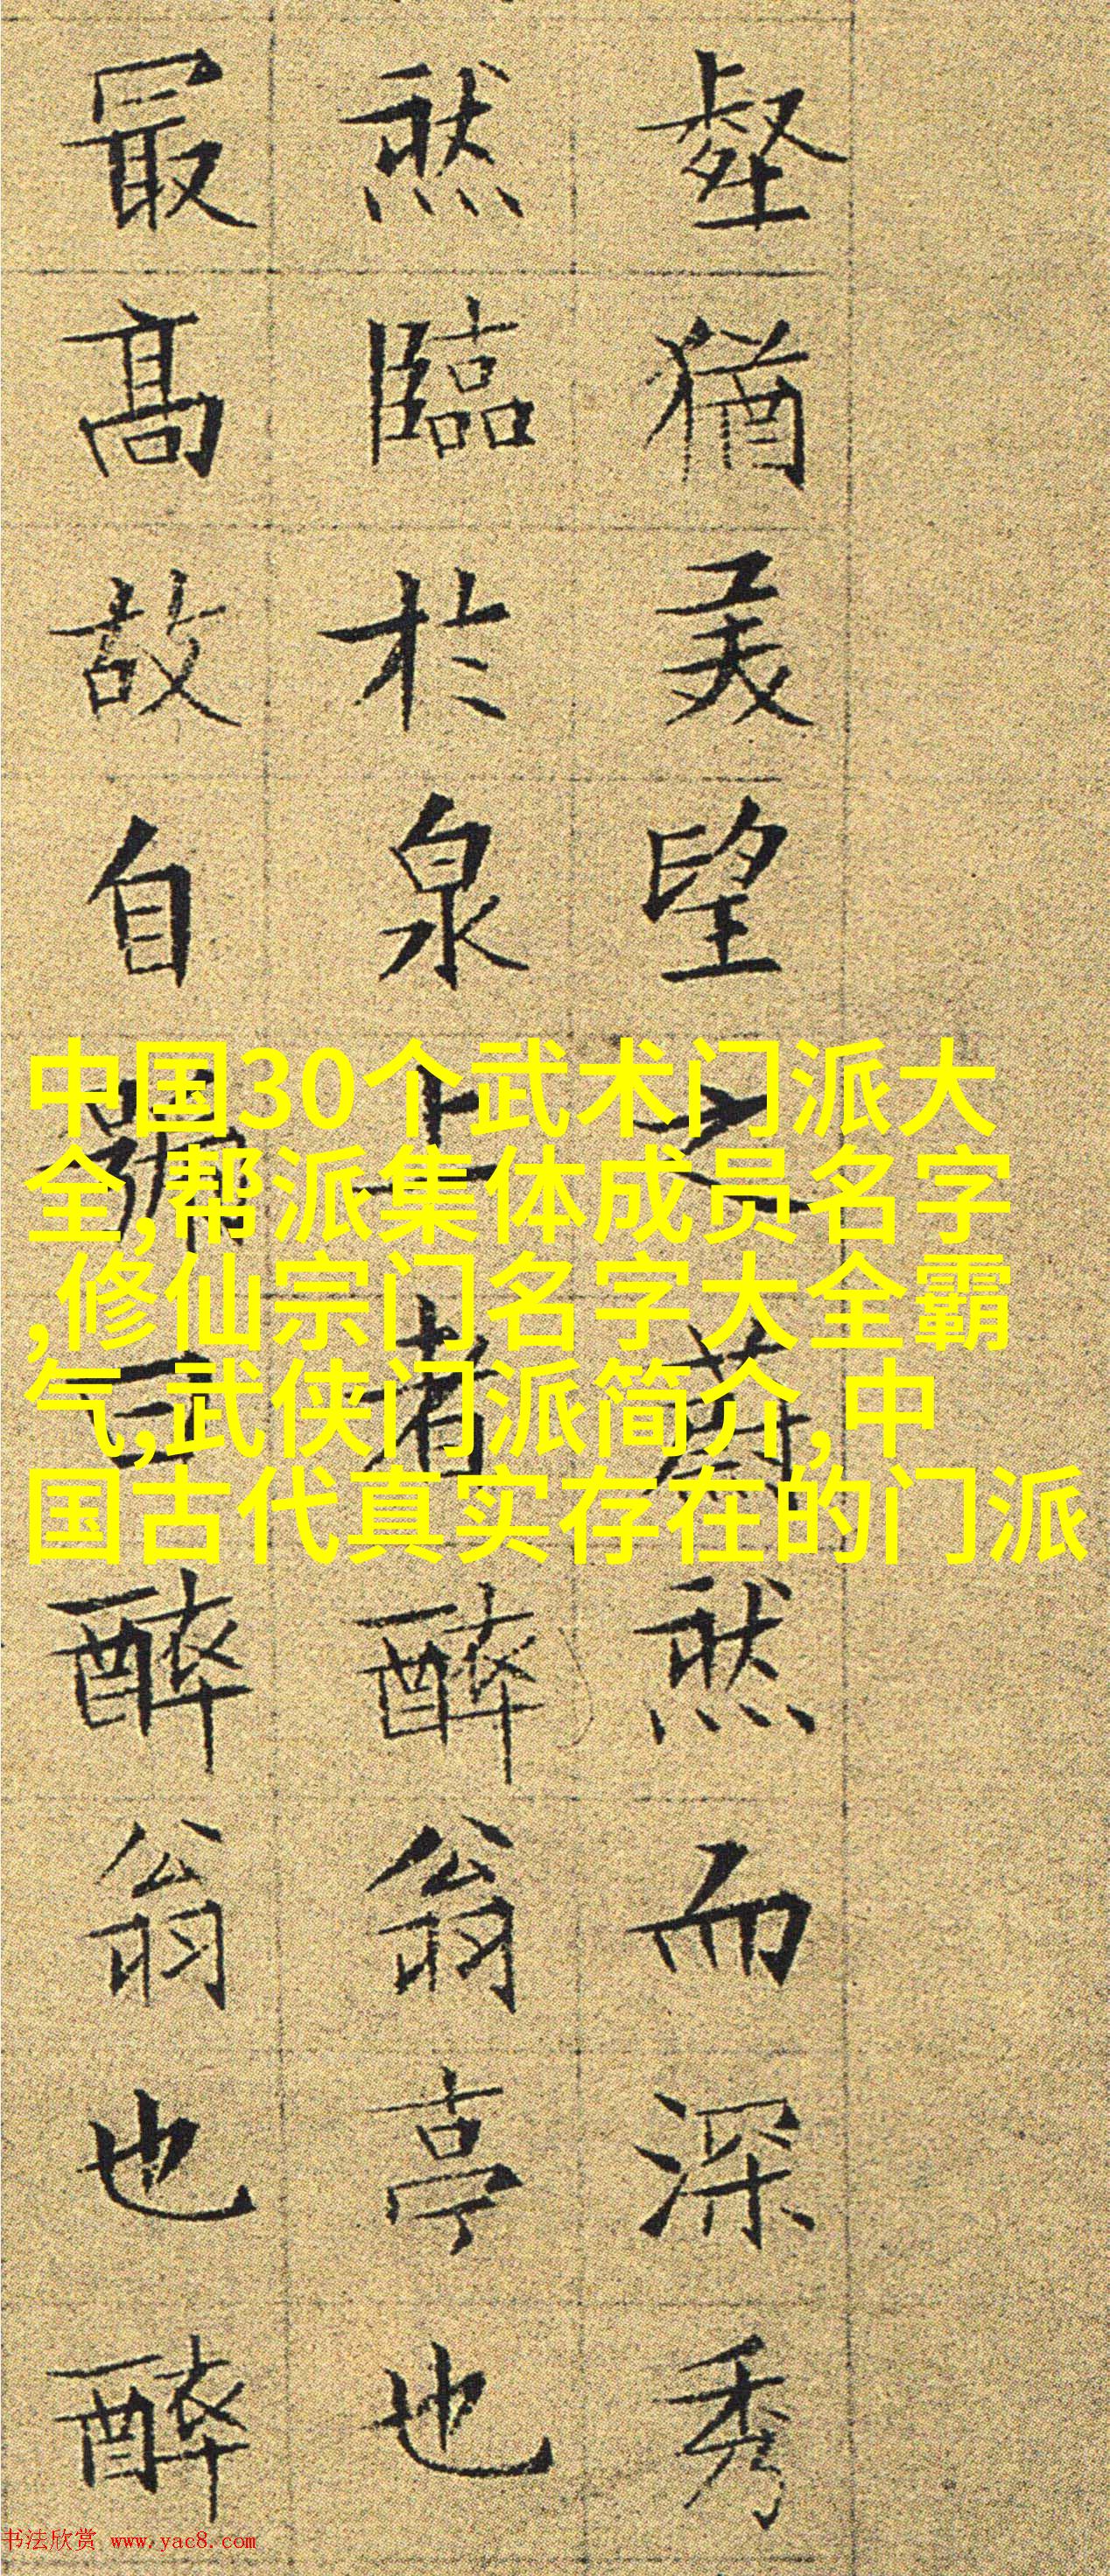 壑猶美望之蔚然而深秀
然臨於泉上者醉翁亭也
最高故自號曰醉翁也醉
中国30个武术门派大
全,帮派集体成员名字
,修仙宗门名字大全霸
气,武侠门派简介,中
国古代真实存在的门派
书法欣赏 www.yac8.com